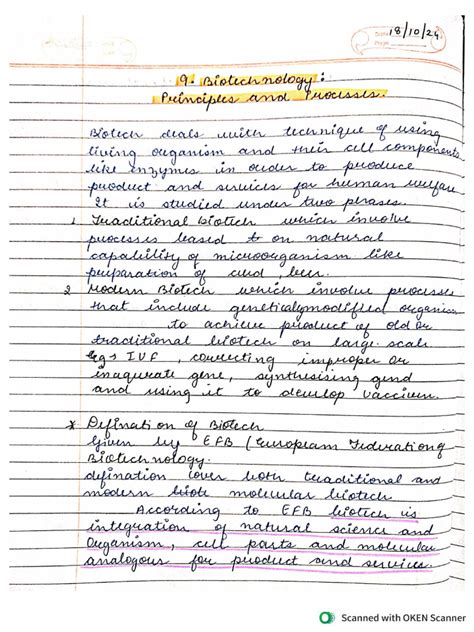 Date 18/10/24
Page
9. Biotechnology :
Principles and Processes.
Biotech deals with technique of using
living organism and their cell components
like enzymes in order to produce
product and services for human welfare
It is studied under two phrases.
1. Traditional biotech which involve
processes based to on natural
capability of microorganism like
preparation of curd, beer.
2 Modern Biotech which involve processes
that include genetically modified organism
to achieve product of old or
traditional biotech on large scale
Eg → IVF, correcting improper or
inaqurate gene, synthesising gend
and using it to develop vacciven.
* Defination of Biotech
Given by EFB (European Federation of
Biotechnology.
defination cover both traditional and
modern biote molecular biotech
According to EFB biotech is
integration of natural science and
Organism, cell parts and molecular
analogous for product and services.
Scanned with OKEN Scanner